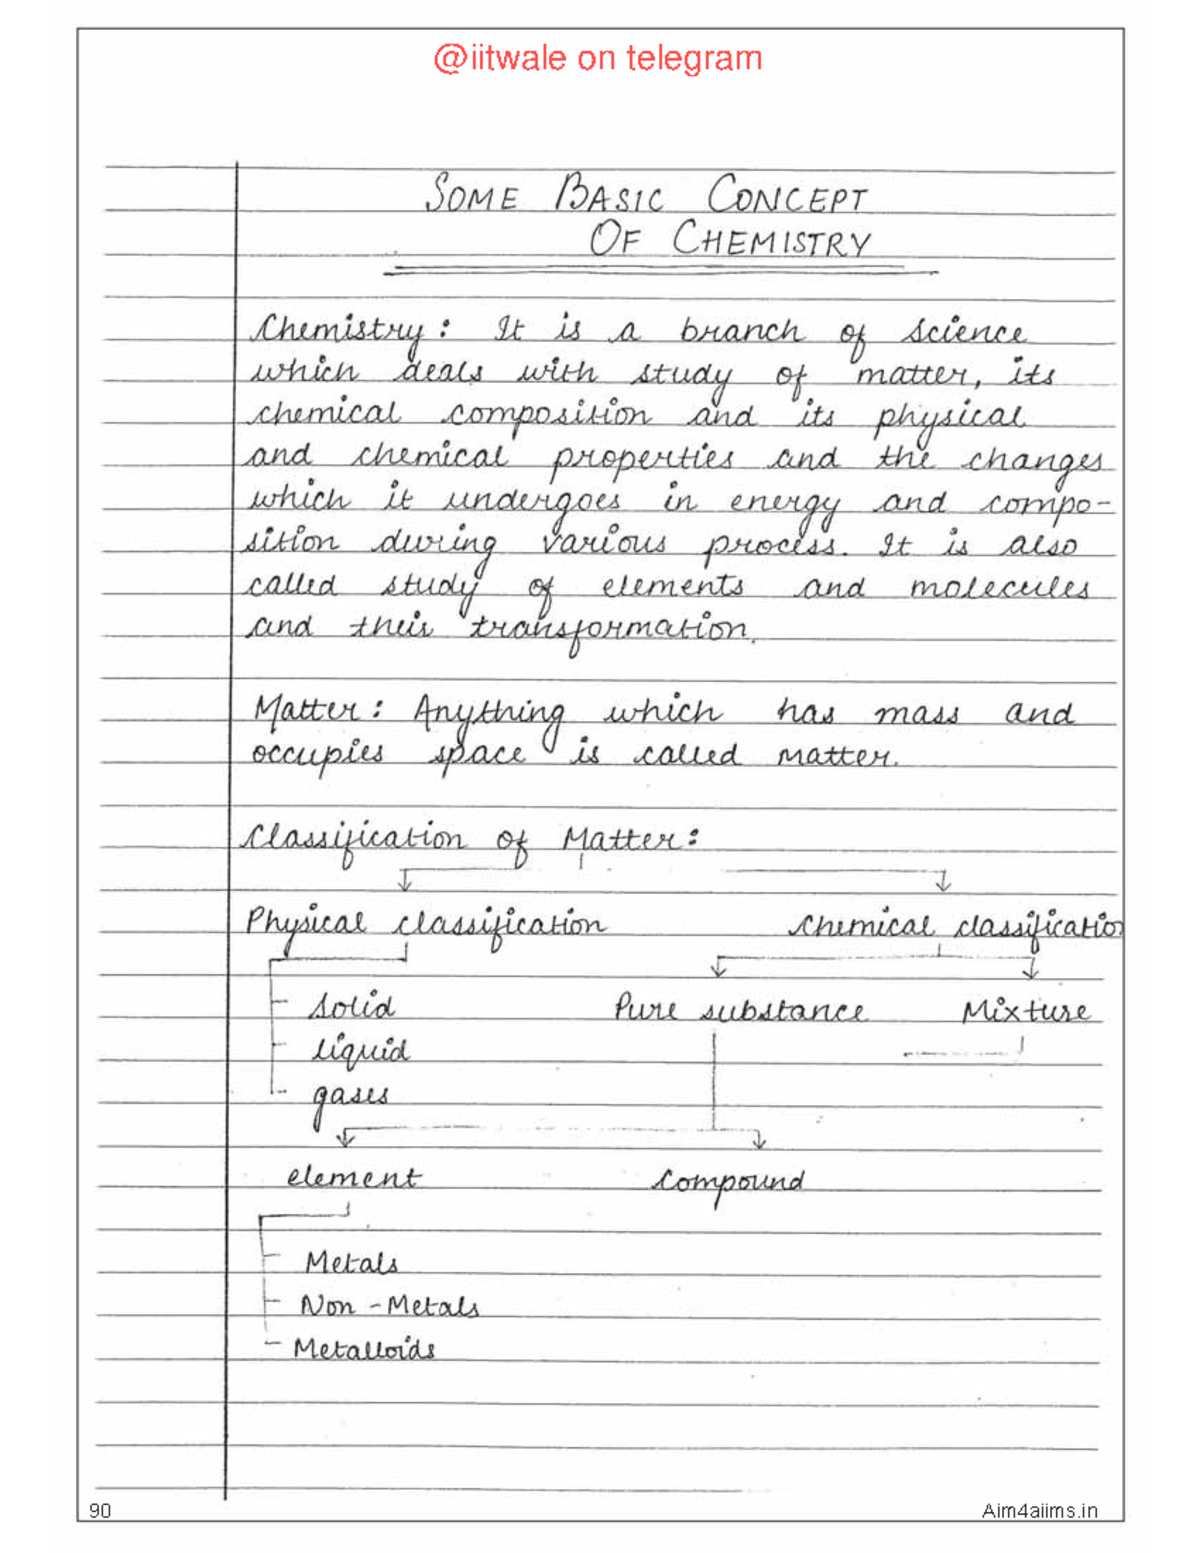 @iitwale on telegram
SOME BASIC CONCEPT
OF CHEMISTRY
Chemistry: It is a branch of science
which deals with study of matter, its
chemical composition and its physical
and chemical properties and the changes
which it undergoes in energy and compo-
sition during various process. It is also
called study of elements and molecules
and their transformation.
Matter: Anything which has mass and
occupies space is called matter.
Classification of Matter:
Physical classification Chemical classification
Solid Pure substance Mixture
liquid
gases
element Compound
Metals
Non-Metals
Metalloids
90 Aim4aiims.in